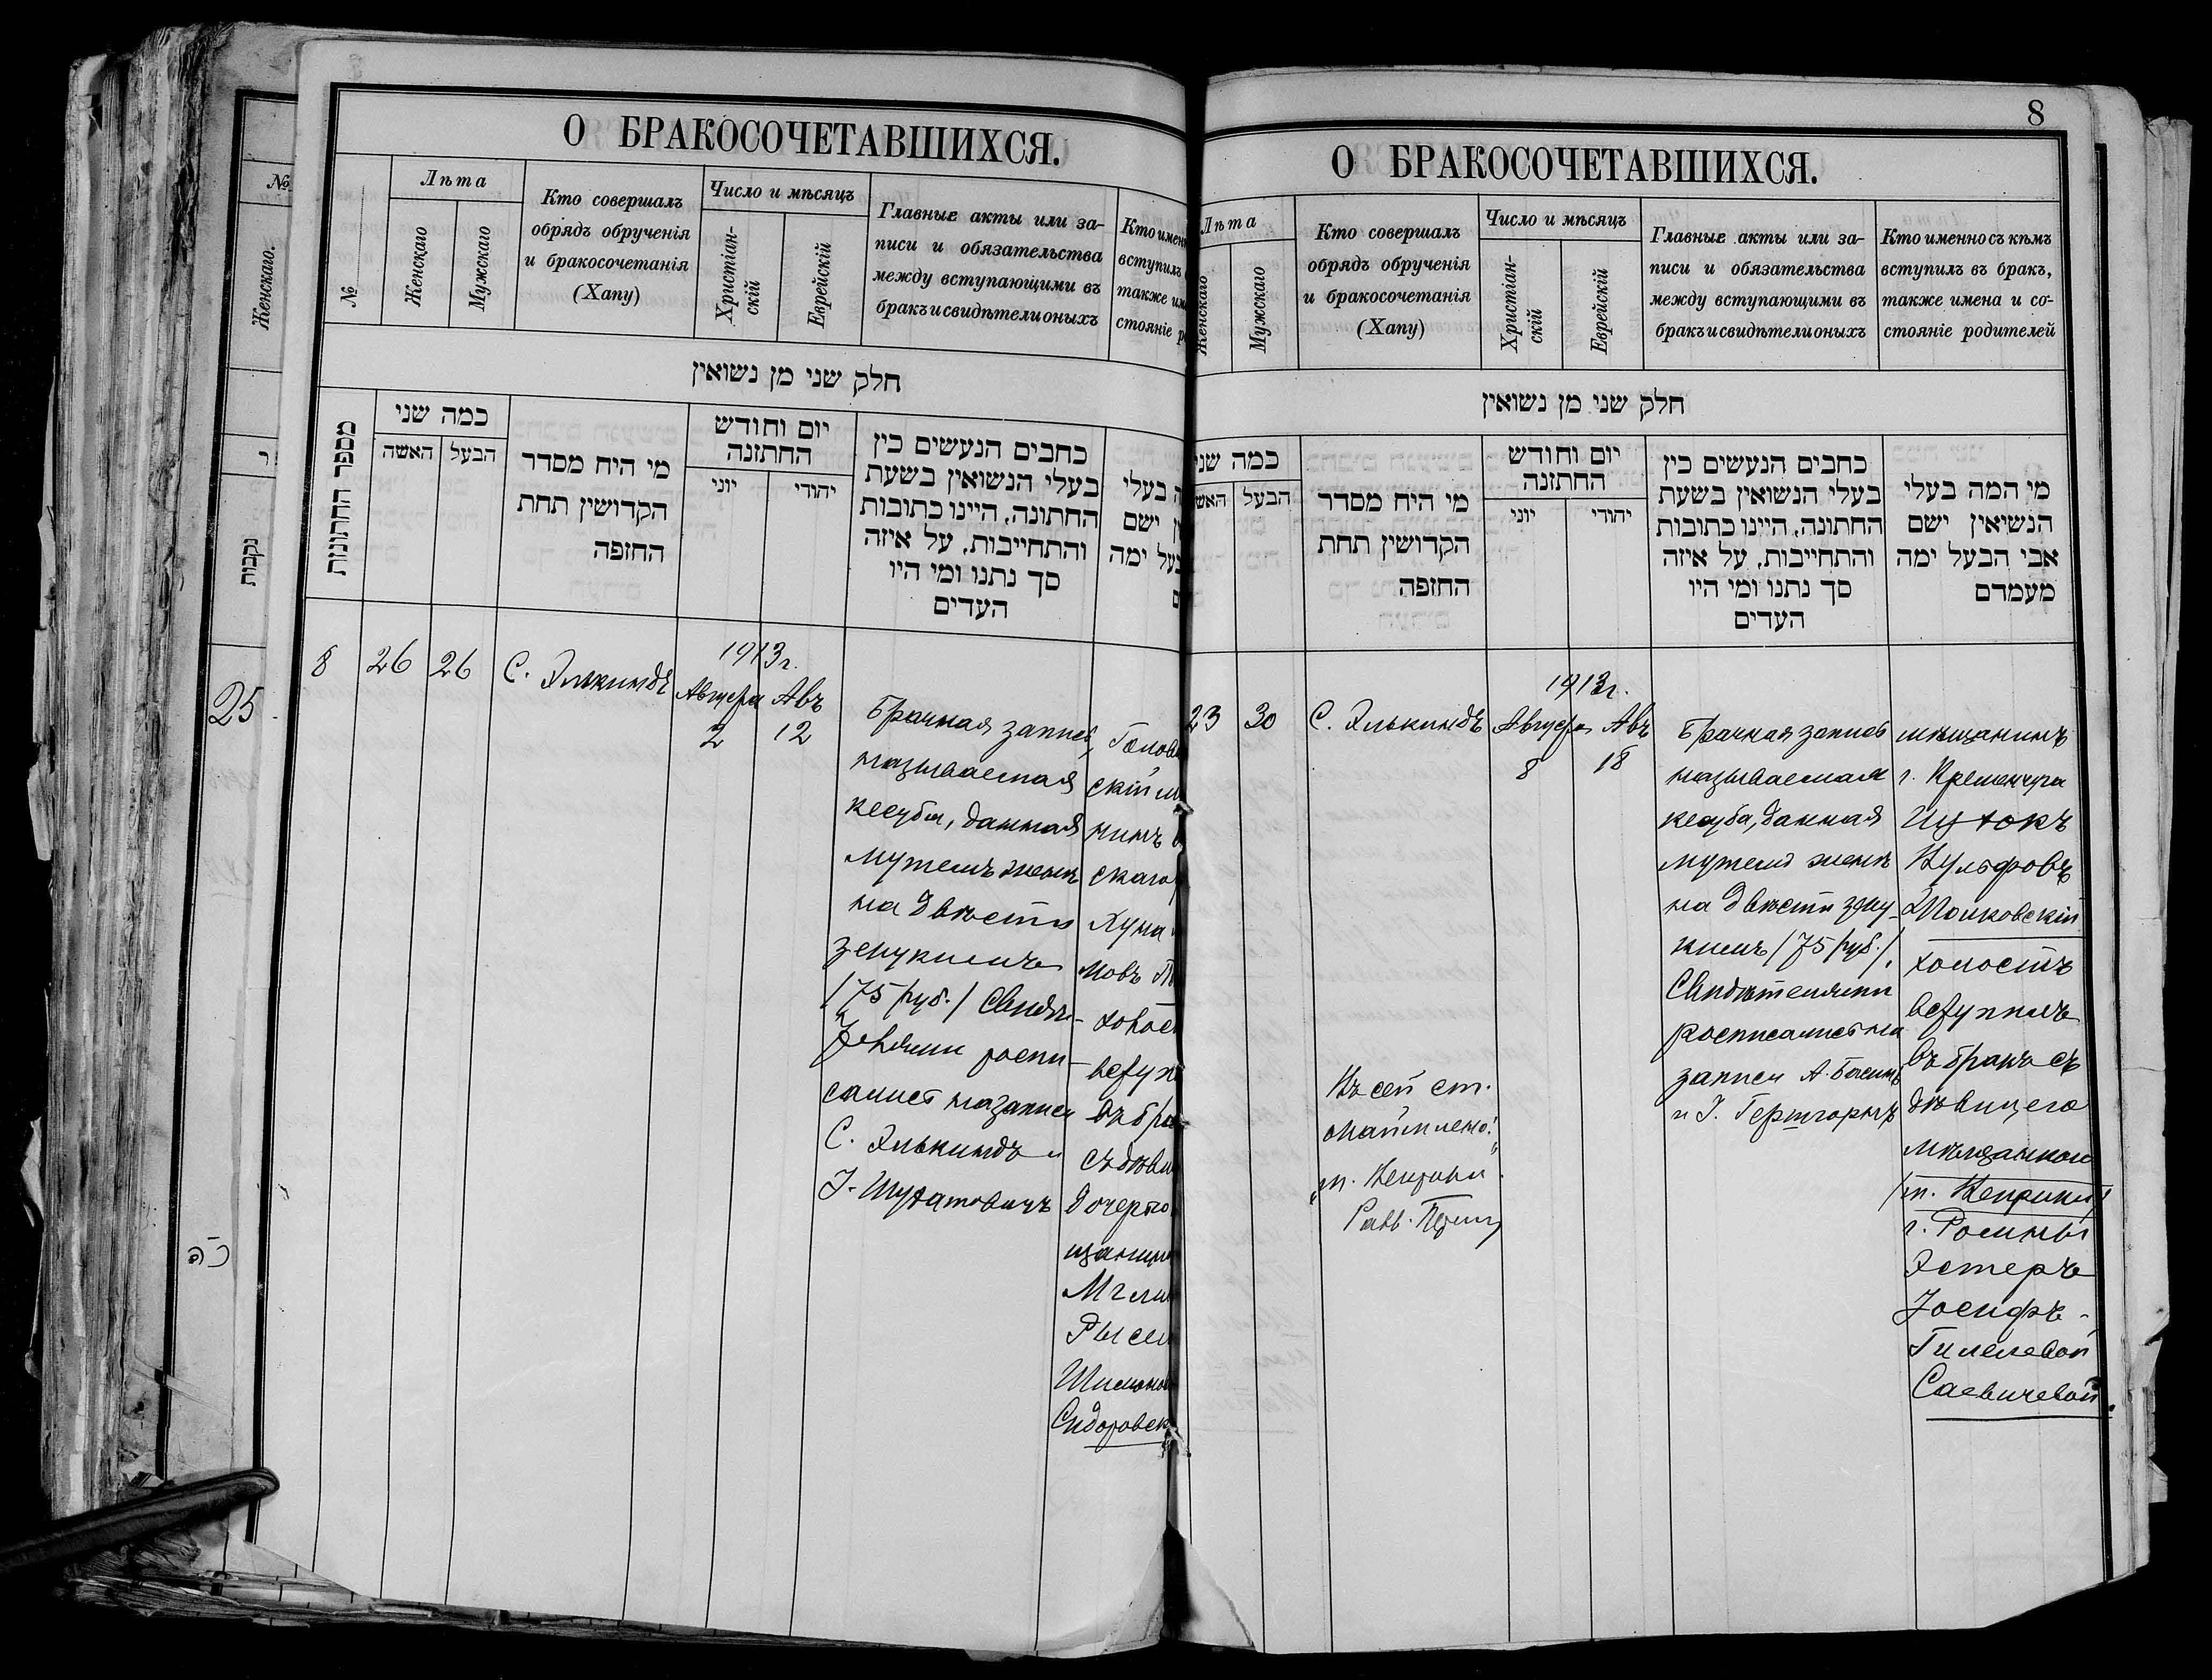 8
О БРАКОСОЧЕТАВШИХСЯ.
№
Женскаго.
נקבות
25
כ"ה
№
Лѣта
Женскаго
Мужскаго
Кто совершалъ
обрядъ обрученія
и бракосочетанія
(Хапу)
Число и мѣсяцъ
Христіан-
скій
Еврейскій
Главные акты или за-
писи и обязательства
между вступающими въ
бракъ и свидѣтели оныхъ
Кто имен
вступилъ
также им
стояніе р
חלק שני מן נשואין
מספר החתונות
כמה שני
הבעל
האשה
מי היח מסדר
הקדושין תחת
החזפה
יום וחודש
החתזנה
יהודי
יוני
כחבים הנעשים כין
בעלי הנשואין בשעת
החתונה, היינו כתובות
והתחייבות, על איזה
סך נתנו ומי היו
העדים
ה בעלי
ין ישם
בעל ימה
8
26
26
С. Элькиндъ
1913 г.
Августа
2
Авъ
12
Брачная запись,
называемая
кесуба, данная
мужемъ женѣ
на двѣсти
зекукимъ
/75 руб./ Свидѣ-
телями роспи-
сались на записи
С. Элькиндъ и
скій м
нинъ
скаго
Хуна
вступ
въ бра
съ дѣви
дочерью
щанин
Мгли
Рысе
Шимоно
Сидоровск
О БРАКОСОЧЕТАВШИХСЯ.
Лѣта
Женскаго
Мужскаго
Кто совершалъ
обрядъ обрученія
и бракосочетанія
(Хапу)
Число и мѣсяцъ
Христіан-
скій
Еврейскій
Главные акты или за-
писи и обязательства
между вступающими въ
бракъ и свидѣтели оныхъ
Кто именно съ кѣмъ
вступилъ въ бракъ,
также имена и со-
стояніе родителей
חלק שני מן נשואין
כמה שני
הבעל
האש
מי היח מסדר
הקדושין תחת
החזפה
יום וחודש
החתזנה
יהודי
יוני
כחבים הנעשים כין
בעלי הנשואין בשעת
החתונה, היינו כתובות
והתחייבות, על איזה
סך נתנו ומי היו
העדים
מי המה בעלי
הנשיאין ישם
אבי הבעל ימה
מעמדם
23
30
С. Элькиндъ
1913 г.
Августа
8
Авъ
18
Брачная запись
называемая
кесуба, данная
мужемъ женѣ
на двѣсти зеку-
кимъ /75 руб./.
Свидѣтелями
росписались на
записи А.
и І.
Въ сей ст.
Равв.
мѣщанинъ
г. Кременчуга
Ицхокъ
Вульфовъ
холостъ
вступилъ
въ бракъ съ
дѣвицею
мѣщанкою
г. Ромны
Эстеръ
Іосифъ-
Гилелевой
Саевичевой.